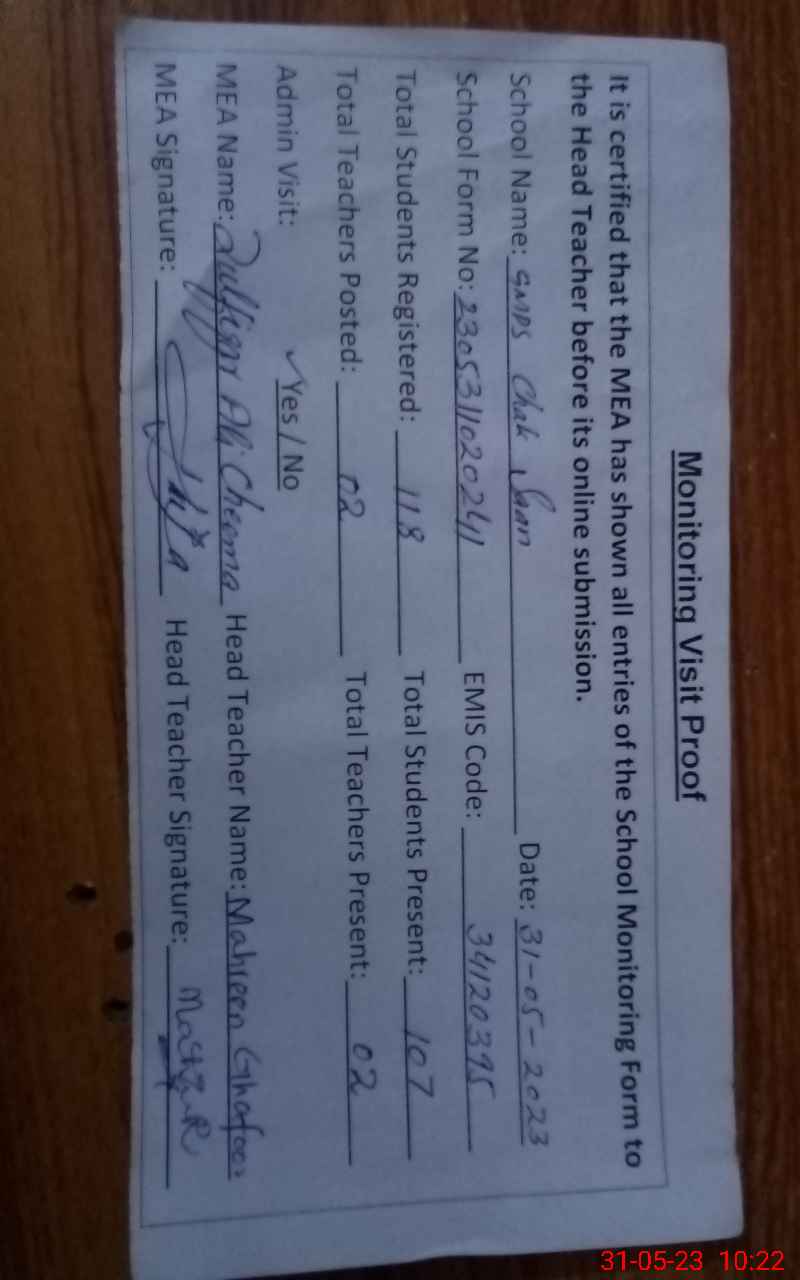 Monitoring Visit Proof
It is certified that the MEA has shown all entries of the School Monitoring Form to
the Head Teacher before its online submission.
School Name: GMPS Chak Date: 31-05-2023
School Form No: 2305311020241 EMIS Code: 34120395
Total Students Registered: 118 Total Students Present: 107
Total Teachers Posted: 02 Total Teachers Present: 02
Admin Visit: ✓Yes / No
MEA Name: Zulfiqar Ali Cheema Head Teacher Name: Mahreen Ghafoor
MEA Signature: Head Teacher Signature:
31-05-23 10:22